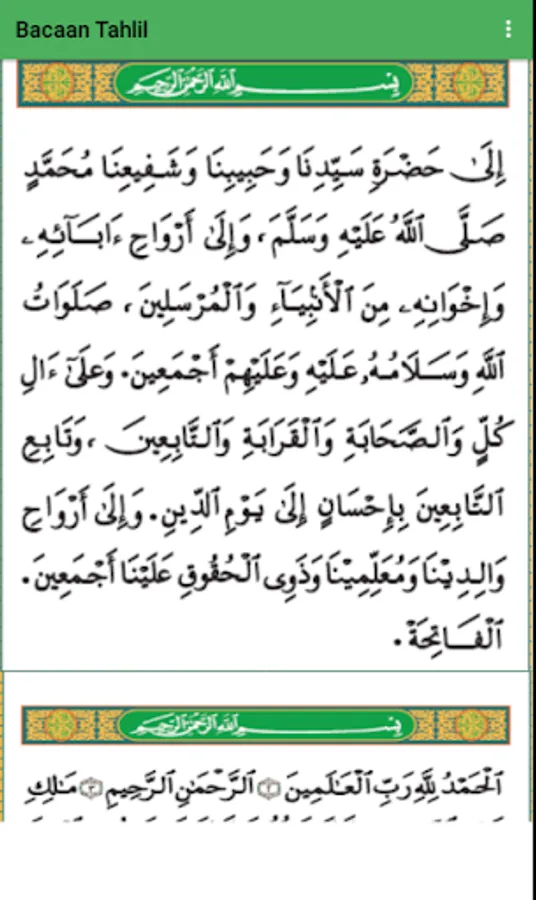 Bacaan Tahlil
بِسْمِ اللَّهِ الرَّحْمَٰنِ الرَّحِيمِ
إِلَىٰ حَضْرَةِ سَيِّدِنَا وَحَبِيبِنَا وَشَفِيعِنَا مُحَمَّدٍ
صَلَّى ٱللَّهُ عَلَيْهِ وَسَلَّمَ، وَإِلَىٰ أَرْوَاحِ ءَابَآئِهِۦ
وَإِخْوَانِهِۦ مِنَ ٱلْأَنْبِيَآءِ وَٱلْمُرْسَلِينَ، صَلَوَاتُ
ٱللَّهِ وَسَلَامُهُۥ عَلَيْهِ وَعَلَيْهِمْ أَجْمَعِينَ. وَعَلَىٰٓ ءَالِ
كُلٍّ وَٱلصَّحَابَةِ وَٱلْقَرَابَةِ وَٱلتَّابِعِينَ، وَتَابِعِ
ٱلتَّابِعِينَ بِإِحْسَانٍ إِلَىٰ يَوْمِ ٱلدِّينِ. وَإِلَىٰ أَرْوَاحِ
وَالِدِيْنَا وَمُعَلِّمِيْنَا وَذَوِى ٱلْحُقُوقِ عَلَيْنَا أَجْمَعِينَ.
ٱلْفَاتِحَةْ.
بِسْمِ اللَّهِ الرَّحْمَٰنِ الرَّحِيمِ
ٱلْحَمْدُ لِلَّهِ رَبِّ ٱلْعَـٰلَمِينَ ٢ ٱلرَّحْمَـٰنِ ٱلرَّحِيمِ ٣ مَـٰلِكِ